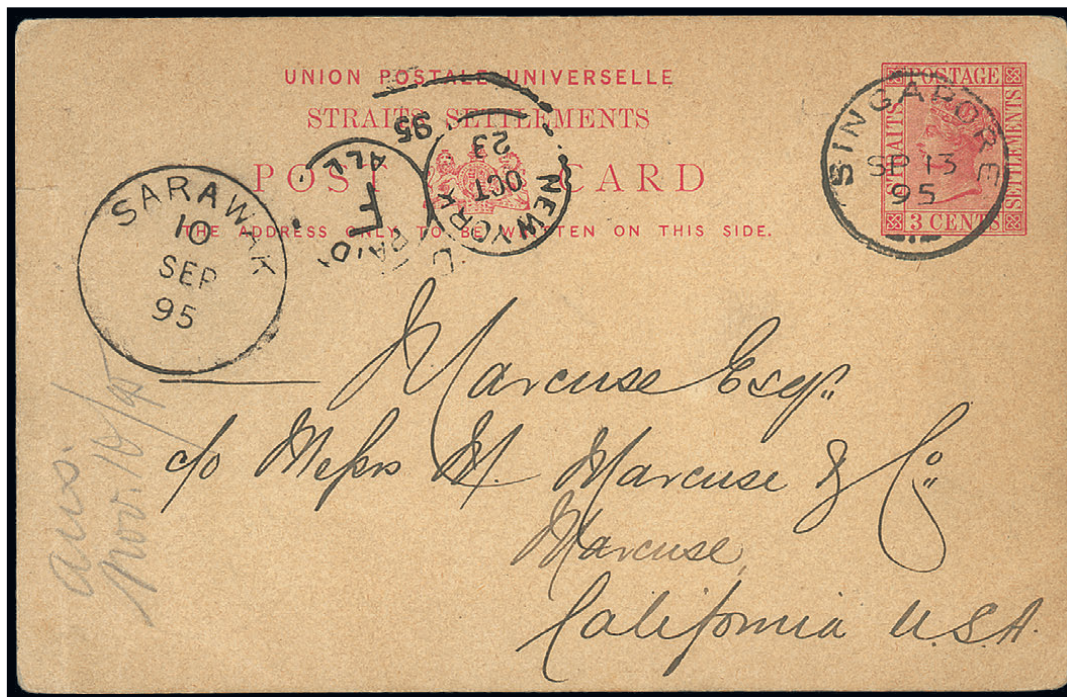 UNION POSTALE UNIVERSELLE
STRAITS SETTLEMENTS
POST CARD
THE ADDRESS ONLY TO BE WRITTEN ON THIS SIDE.
POSTAGE
STRAITS
SETTLEMENTS
3 CENTS
SINGAPORE
SP 13
95
SARAWAK
10
SEP
95
NEW YORK
OCT
23
95
PAID
F
ALL
Marcuse Esqr.
c/o Messrs M. Marcuse & Co.
Marcuse,
California U.S.A.
ans.
Nov. 14/95